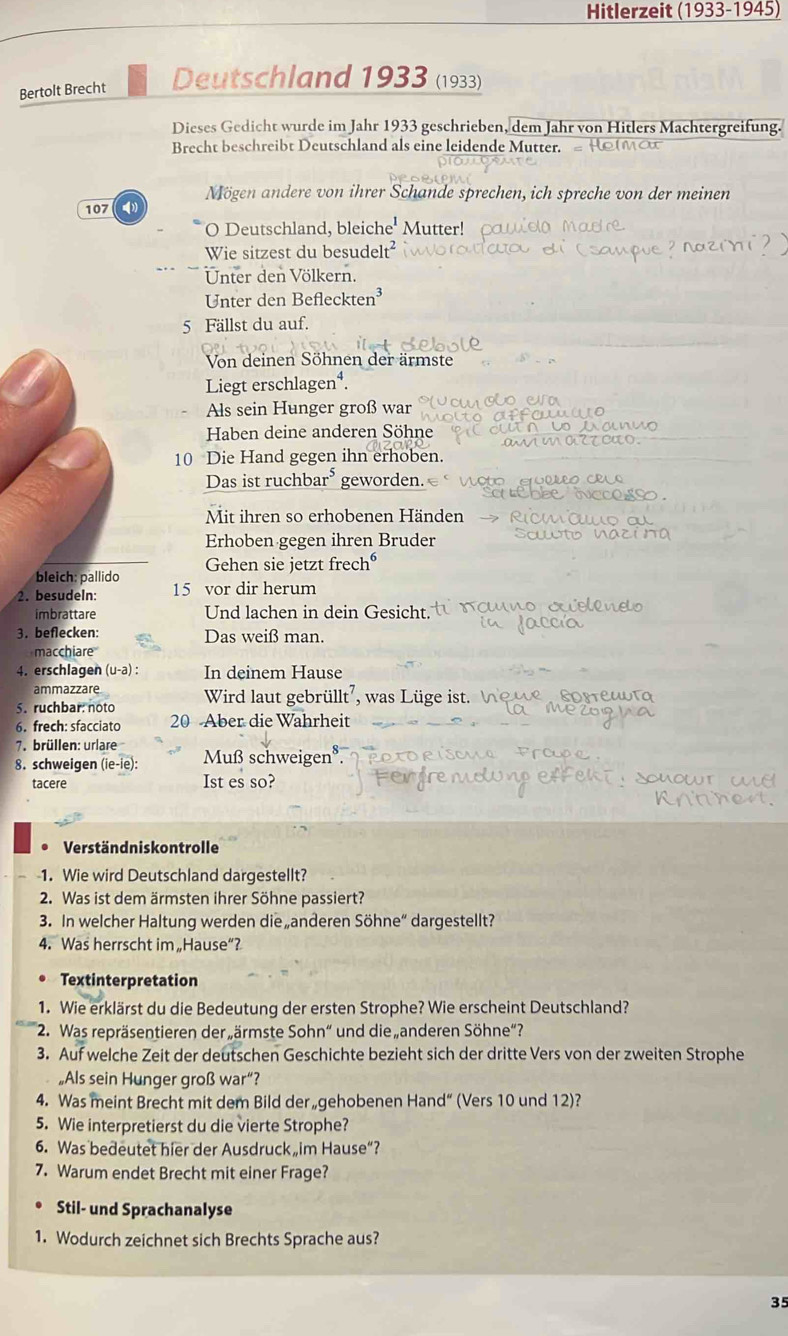 Hitlerzeit (1933-1945)
Bertolt Brecht Deutschland 1933 (1933)
Dieses Gedicht wurde im Jahr 1933 geschrieben, dem Jahr von Hitlers Machtergreifung.
Brecht beschreibt Deutschland als eine leidende Mutter. = Heimat
piangente
PROBLEMI
Mögen andere von ihrer Schande sprechen, ich spreche von der meinen
107
O Deutschland, bleiche¹ Mutter! pallida madre
Wie sitzest du besudelt² di (sangue? nazini?)
Unter den Völkern.
Unter den Befleckten³
5 Fällst du auf.
il + debole
Von deinen Söhnen der ärmste
Liegt erschlagen⁴.
Als sein Hunger groß war quando era
molto affamato
Haben deine anderen Söhne gli lo hanno
ammazzato.
alzare
10 Die Hand gegen ihn erhoben.
Das ist ruchbar⁵ geworden. noto
successo.
Mit ihren so erhobenen Händen → Richiamo al
Erhoben gegen ihren Bruder saluto nazista
Gehen sie jetzt frech⁶
15 vor dir herum
Und lachen in dein Gesicht. ti ridendo
in faccia
Das weiß man.
In deinem Hause
Wird laut gebrüllt⁷, was Lüge ist. viene sostenuta
la mezogna
20 Aber die Wahrheit
Muß schweigen⁸. Retorische Frage.
Ist es so? Ferfremdung effekt:
bleich: pallido
2. besudeln:
imbrattare
3. beflecken:
macchiare
4. erschlagen (u-a) :
ammazzare
5. ruchbar: noto
6. frech: sfacciato
7. brüllen: urlare
8. schweigen (ie-ie):
tacere
• Verständniskontrolle
1. Wie wird Deutschland dargestellt?
2. Was ist dem ärmsten ihrer Söhne passiert?
3. In welcher Haltung werden die „anderen Söhne“ dargestellt?
4. Was herrscht im „Hause“?
• Textinterpretation
1. Wie erklärst du die Bedeutung der ersten Strophe? Wie erscheint Deutschland?
2. Was repräsentieren der „ärmste Sohn“ und die „anderen Söhne“?
3. Auf welche Zeit der deutschen Geschichte bezieht sich der dritte Vers von der zweiten Strophe
„Als sein Hunger groß war“?
4. Was meint Brecht mit dem Bild der „gehobenen Hand“ (Vers 10 und 12)?
5. Wie interpretierst du die vierte Strophe?
6. Was bedeutet hier der Ausdruck „im Hause“?
7. Warum endet Brecht mit einer Frage?
• Stil- und Sprachanalyse
1. Wodurch zeichnet sich Brechts Sprache aus?
35